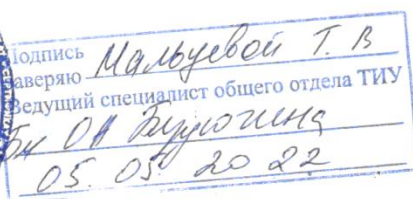 Подпись Мальцевой Т. В
заверяю
Ведущий специалист общего отдела ТИУ
05. 05. 2022